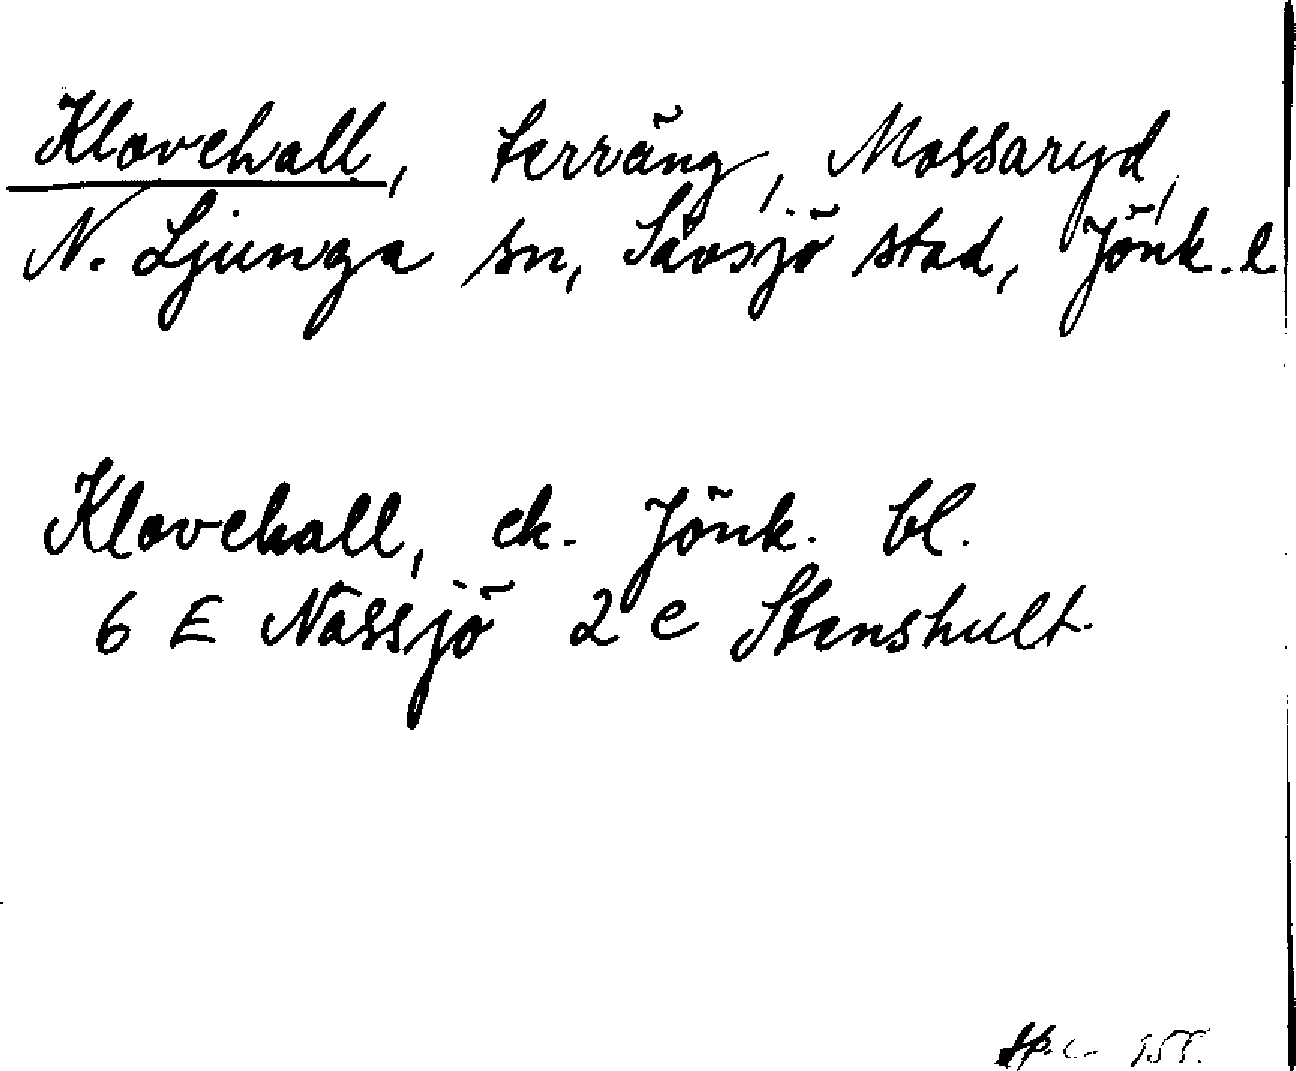 Klovehall, terräng, Mossaryd,
N. Ljunga sn, Sävsjö stad, Jönk. l.
Klovehall, ek. Jönk. bl.
6 E Nässjö 2 e Stenshult.